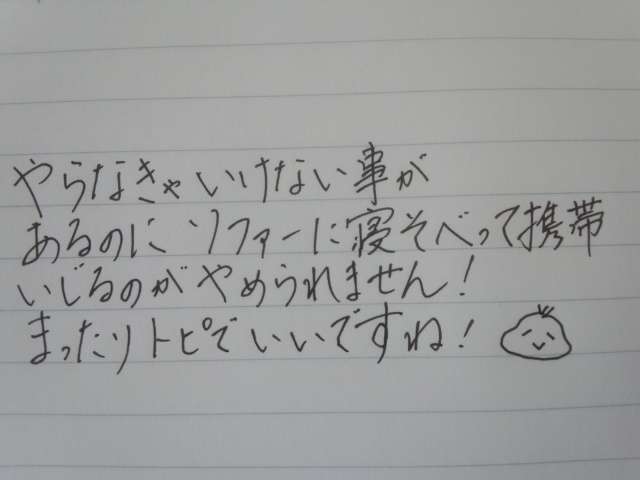 やらなきゃいけない事が
あるのにソファーに寝そべって携帯
いじるのがやめられません!
まったりトピでいいですね!